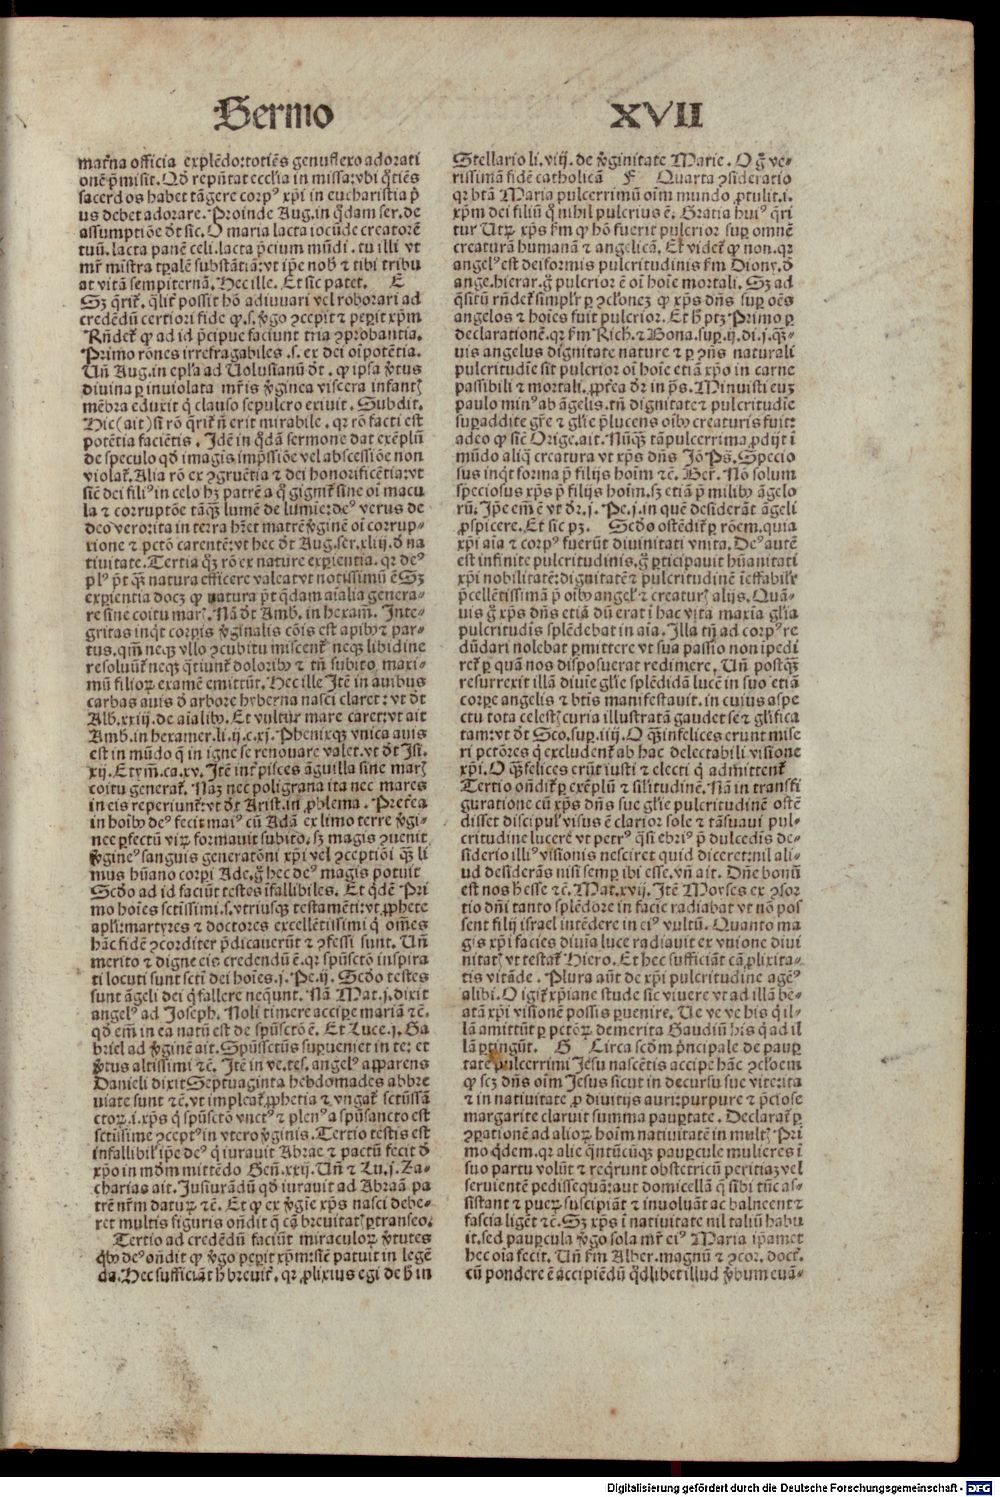 Sermo XVII
mat̄na officia explēdo: totiēs genuflexo adorati
onē p̄misit. Qd̄ repn̄tat eccl̄ia in missa: vbi q̄tiēs
sacerdos habet tāgere corpꝰ xp̄i in eucharistia pͥ
us debet adorare. Proinde Aug. in q̄dam ser. de
assumptiōe d̄t sic. O maria lacta iocūde creatorē
tuū. lacta panē celi. lacta p̄cium mūdi. tu illi vt
mr̄ mīstra tp̄alē substātiā: vt ip̄e nob̄ ⁊ tibi tribu
at vitā sempiternā. Hec ille. Et sic patet. E
Sꝫ q̄rit᷑. q̄lit᷑ possit hō adiuuari vel roborari ad
credēdū certiori fide ꝙ .s. v̄go ꝯcepit ⁊ peꝑit xp̄m
Rn̄det᷑ ꝙ ad id p̄cipue faciunt tria ꝯprobantia.
Primo rōnes irrefragabiles .s. ex dei oīpotētia.
Un̄ Aug. in epl̄a ad Uolusianū d̄t. ꝙ ipsa v̄tus
diuina ꝑ inuiolata mr̄is v̄ginea viscera infantꝭ
mēbra eduxit q̄ clauso sepulcro exiuit. Subdit.
Hic (ait) si rō q̄rit᷑ nō erit mirabile. qr rō facti est
potētia faciētis. Idē in q̄dā sermone dat exēplū
de speculo qd̄ imagis imp̄ssiōe vel abscessiōe non
violat᷑. Alia rō ex ꝯgruētia ⁊ dei honorificētia: vt
sic̄ dei filiꝰ in celo hꝫ patrē a q̄ gignit᷑ sine oī macu
la ⁊ corruptōe tāqꝫ lumē de lumie: deꝰ verus de
deo vero: ita in terra hēt matrē v̄ginē oī corrup-
tione ⁊ pctō carentē: vt hec d̄t Aug. ser. xliij. d̄ na
tiuitate. Tertia qꝫ rō ex nature exꝑientia. qr deꝰ
plꝰ pōt qꝫ natura efficere valeat vt notissimū ē Sꝫ
exꝑientia docꝫ ꝙ natura pōt q̄dam aīalia genera-
re sine coitu marꝭ. Nā d̄t Amb. in hexam̄. Inte-
gritas inq̄t corꝑis v̄ginalis cōis est apibꝰ ⁊ par-
tus. qm̄ neqꝫ vllo ꝯcubitu miscent᷑ neqꝫ libidine
resoluūt᷑ neqꝫ q̄tiunt᷑ doloribꝰ ⁊ tn̄ subito maxi-
mū filioꝝ examē emittūt. Hec ille Itē in auibus
carbas auis d̄ arbore hyberna nasci claret: vt d̄t
Alb. xxiij. de aīalibꝰ. Et vultur mare caret: vt ait
Amb. in hexamer. li. ij. c. xj. Phenixqꝫ vnica auis
est in mūdo q̄ in igne se renouare valet. vt d̄t Isi.
xij. Etym̄. ca. xv. Itē int᷑ pisces āguilla sine marꝭ
coitu generat᷑. Naꝫ nec poligrana ita nec mares
in eis reperiunt᷑: vt d̄t Arist. in ꝓblema. Pret᷑ea
in hoībꝰ deꝰ fecit maiꝰ cū Adā ex limo terre v̄gi-
nee ꝑfectū viꝝ formauit subito. sꝫ magis ꝯuenit
v̄gineꝰ sanguis generatōni xp̄i vel ꝯceptiōi qꝫ li
mus hūano corpi Ade. g̊ hec deꝰ magis potuit
Scd̄o ad id faciūt testes īfallibiles. Et q̄dē Pri
mo hoīes sctīssimi .s. vtriusqꝫ testamēti: vt ꝓphete
apl̄i: martyres ⁊ doctores excellētissimi q̄ om̄es
hāc fidē ꝯcorditer p̄dicauerūt ⁊ ꝯfessi sunt. Un̄
merito ⁊ digne eis credendū ē. qr spūsctō inspira
ti locuti sunt scti dei hoīes .j. Pe. ij. Scd̄o testes
sunt āgeli dei q̄ fallere neq̄unt. Nā Mat. j. dixit
angelꝰ ad Ioseph. Noli timere acciꝑe mariā ⁊c̄.
qd̄ em̄ in ea natū est de spūsctō ē. Et Luce. j. Ga
briel ad v̄ginē ait. Spūssctus suꝑueniet in te: et
v̄tus altissimi ⁊c̄. Itē in ve. tes. angelꝰ apparens
Danieli dixit Septuaginta hebdomades abbre
uiate sunt ⁊c̄. vt impleat᷑ ꝓphetia ⁊ vngat᷑ sctūssā
ctoꝝ .i. xp̄s q̄ spūsctō vnctꝰ ⁊ plenꝰ a spūsancto est
sctīssime ꝯceptꝰ in vtero v̄ginis. Tertio testis est
infallibilꝭ ip̄e deꝰ q̄ iurauit Abrae ⁊ pactū fecit d̄
xp̄o in mdm̄ mittēdo Gen̄. xxij. Un̄ ⁊ Lu. j. Za-
charias ait. Jusiurādū qd̄ iurauit ad Abraā pa
trē nr̄m datuꝝ ⁊c̄. Et ꝙ ex v̄gīe xp̄s nasci debe-
ret multis figuris on̄dit q̄ cā breuitatꝭ ꝑtranseo.
Tertio ad credēdū faciūt miraculoꝝ v̄tutes
qͥbꝰ deꝰ on̄dit ꝙ v̄go peꝑit xp̄m: sic̄ patuit in legē
da. Hec sufficiāt h̄ breuit᷑. qr ꝓlixius egi de h̄ in
Stellario li. viij. de v̄ginitate Marie. O g̊ ve-
rissimam fidē catholicā F Quarta ꝯsideratio
qr btā Maria pulcerrimū oīm mundo ꝓtulit .i.
xp̄m dei filiū q̄ nihil pulcrius ē. Gratia huiꝰ q̄ri
tur Utꝝ xp̄s fm̄ ꝙ hō fuerit pulcrior suꝑ omnē
creaturā humanā ⁊ angelicā. Et videt᷑ ꝙ non. qr
angelꝰ est deiformis pulcritudinis fm̄ Diony. d̄
ange. hierar. g̊ pulcrior ē oī hoīe mortali. Sꝫ ad
q̄sitū rn̄det᷑ simplr̄ ꝑ ꝯclonē ꝙ xp̄s dn̄s suꝑ oēs
angelos ⁊ hoīes fuit pulcrior. Et h̄ ptꝫ Primo ꝑ
declarationē. qr fm̄ Rich. ⁊ Bona. suꝑ. ij. di. j. qꝫ-
uis angelus dignitate nature ⁊ ꝑ ꝯn̄s naturali
pulcritudīe sit pulcrior oī hoīe etiā xp̄o in carne
passibili ⁊ mortali. ꝓpt᷑ea dr̄ in ps̄. Minuisti euꝫ
paulo minꝰ ab āgelis. tn̄ dignitate ⁊ pulcritudīe
suꝑaddite gr̄e ⁊ gl̄ie p̄lucens oībꝰ creaturis fuit:
adeo ꝙ sic̄ Orige. ait. Nūqꝫ tā pulcerrima ꝓdijt ī
mūdo aliq̄ creatura vt xp̄s dn̄s. Iō Ps̄. Specio
sus inq̄t forma p̄ filijs hoīm ⁊c̄. Ber. Nō solum
sp̄eciosus xp̄s p̄ filijs hoīm. sꝫ etiā p̄ milibꝰ āgelo
rū. Ip̄e em̄ ē vt dr̄. j. Pe. j. in quē desiderāt āgeli
ꝓspicere. Et sic pꝫ. Scd̄o ostēdit᷑ ꝑ rōem. quia
xp̄i aīa ⁊ corpꝰ fuerūt diuinitati vnita. Deꝰ autē
est infinite pulcritudinis. g̊ ꝑticipauit hūanitati
xp̄i nobilitatē: dignitatē ⁊ pulcritudinē ineffabilr̄
p̄cellētissimā p̄ oībꝰ angelꝭ ⁊ creaturꝭ alijs. Quā-
uis g̊ xp̄s dn̄s etiā dū erat ī hac vita maxīa gl̄ia
pulcritudīs splēdebat in aīa. Illa tn̄ ad corpꝰ re
dūdari nolebat ꝑmittere vt sua passio non ipedi
ret᷑ ꝑ quā nos disposuerat redimere. Un̄ postqꝫ
resurrexit illā diuīe gl̄ie splēdidā lucē in suo etiā
corꝑe angelis ⁊ btīs manifestauit. in cuius aspe
ctu tota celestꝭ curia illustratā gaudet se ⁊ gl̄ifica
tam: vt d̄t Sco. suꝑ. iiij. O qꝫ infelices erunt mise
ri pctōres q̄ excludent᷑ ab hac delectabili visione
xp̄i. O qꝫ felices erūt iusti ⁊ electi q̄ admittent᷑
Tertio on̄dit᷑ ꝑ exēplū ⁊ sil̄itudinē. Nā in transfi
guratione cū xp̄s dn̄s sue gl̄ie pulcritudinē ostē
disset discipulꝭ visus ē clarior sole ⁊ tā suaui pul-
critudine lucere vt petrꝰ q̄si ebriꝰ p̄ dulcedīs de-
siderio illiꝰ visionis nesciret quid diceret: nil ali-
ud desiderās nisi semꝑ ibi esse. vn̄ ait. Dn̄e bonū
est nos h̄ esse ⁊c̄. Mat. xvij. Itē Moyses ex ꝯsor
tio dn̄i tanto splēdore in facie radiabat vt nō pos
sent filij israel intēdere in eiꝰ vultū. Quanto ma
gis xp̄i facies diuīa luce radiauit ex vnione diui
nitatꝭ vt testat᷑ Hiero. Et hec sufficiāt cā ꝓlixita-
tis vitāde. Plura aūt de xp̄i pulcritudine agēꝰ
alibi. O igit᷑ xp̄iane stude sic vivere vt ad illā be-
atā xp̄i visionē possis ꝑuenire. Ue ve ve his q̄ il-
lā amittūt ꝑ pctōꝝ demerita Gaudiū his q̄ ad il
lā ꝑtingūt. G Circa scd̄m p̄ncipale de pauꝑ
tate pulcerrimi Jesu nascētis accipe hāc ꝯclōem
ꝙ scꝫ dn̄s oīm Jesus sicut in decursu sue vite: ita
⁊ in natiuitate ꝓ diuitijs auri: purpure ⁊ p̄ciose
margarite claruit summa pauꝑtate. Declarat᷑ ꝑ
ꝯꝑationē ad alioꝝ hoīm natiuitatē in multꝭ Pri
mo q̄dem. qr alie q̄ntūcūqꝫ pauꝑcule mulieres ī
suo partu volūt ⁊ reqͥrunt obstetricū peritiaꝫ vel
seruientē pedissequā: aut domicellā q̄ sibi tūc as-
sistant ⁊ pueꝝ suscipiāt ⁊ inuoluāt ac balneent ⁊
fascia ligēt ⁊c̄. Sꝫ xp̄s ī natiuitate nil taliū habu
it. sed pauꝑcula v̄go sola mr̄ eiꝰ Maria ip̄amet
hec oīa fecit. Un̄ fm̄ Alber. magnū ⁊ ꝯcor. doct.
cū pondere ē accipiēdū q̄dlibet illud v̄bum euā-
Digitalisierung gefördert durch die Deutsche Forschungsgemeinschaft - DFG